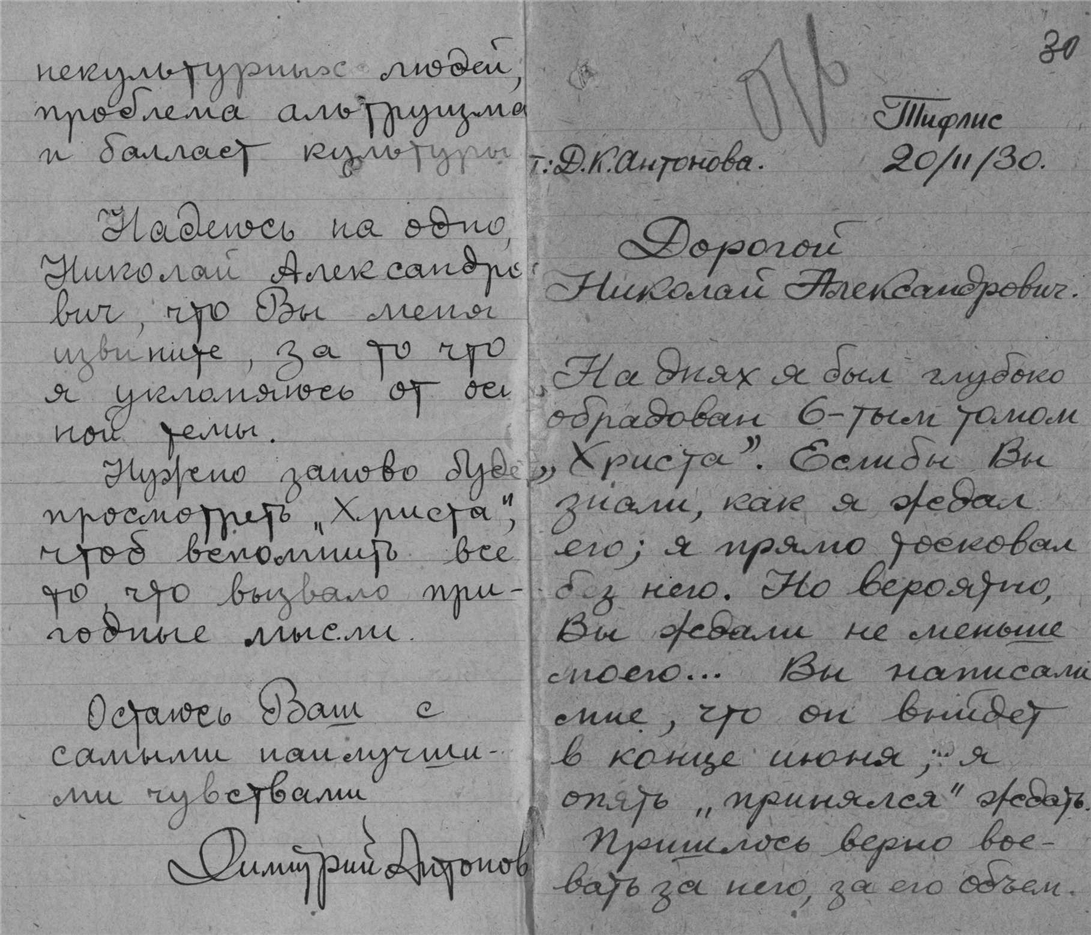 некультурных людей,
проблема альтруизма
и балласт культуры
Надеюсь на одно,
Николай Александро
вич, что Вы меня
извините, за то что
я уклоняюсь от ос
ной темы.
Нужно заново буде
просмотреть „Христа”,
чтоб вспомнить все
то, что вызвало при-
годные мысли.
Остаюсь Ваш с
самыми наилучши-
ми чувствами
Димитрий Антонов
30
Тифлис
т: Д.К. Антонова.
20/II/30.
Дорогой
Николай Александрович.
На днях я был глубоко
обрадован 6-тым томом
„Христа”. Еслибы Вы
знали, как я ждал
его; я прямо тосковал
без него. Но вероятно,
Вы ждали не меньше
моего... Вы написали
мне, что он выйдет
в конце июня; я
опять „принялся” ждать.
Пришлось верно вое-
вать за него, за его объем.